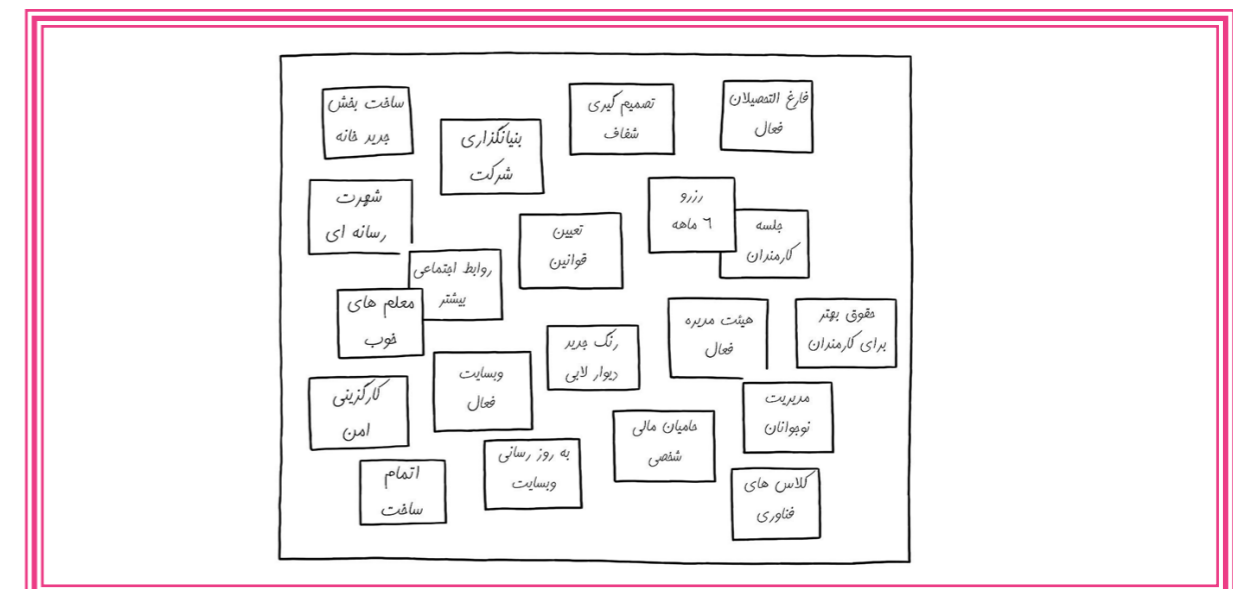 فارغ التحصیلان
فعال
تصمیم گیری
شفاف
ساخت بخش
جدید خانه
بنیانگذاری
شرکت
رزرو
٦ ماهه
جلسه
کارمندان
شهرت
رسانه ای
تعیین
قوانین
روابط اجتماعی
بیشتر
معلم های
خوب
حقوق بهتر
برای کارمندان
هیئت مدیره
فعال
رنگ جدید
دیوار لابی
وبسایت
فعال
کارگزینی
امن
مدیریت
نوجوانان
حامیان مالی
شخصی
به روز رسانی
وبسایت
اتمام
ساخت
کلاس های
فناوری